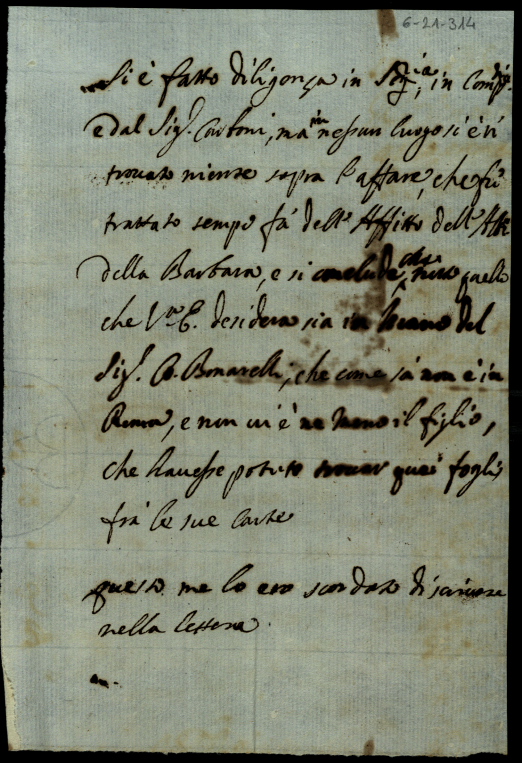 6-21-314
Si è fatto diligenza in Seg.ria, in Comp.
e dal Sig.r Carboni, ma in nessun luogo si è ri
trovato niente sopra l'affare, che fù
trattato tempo fà dell'Affitto dell'
della Barbara, e si conclude, che tutto quello
che V.ra E. desidera sia in mano del
Sig.r Bonarelli, che come sà non è in
Roma, e non vi è ne meno il figlio,
che havesse potuto trovar quei fogli
frà le sue carte
questo me lo ero scordato di scrivere
nella lettera.